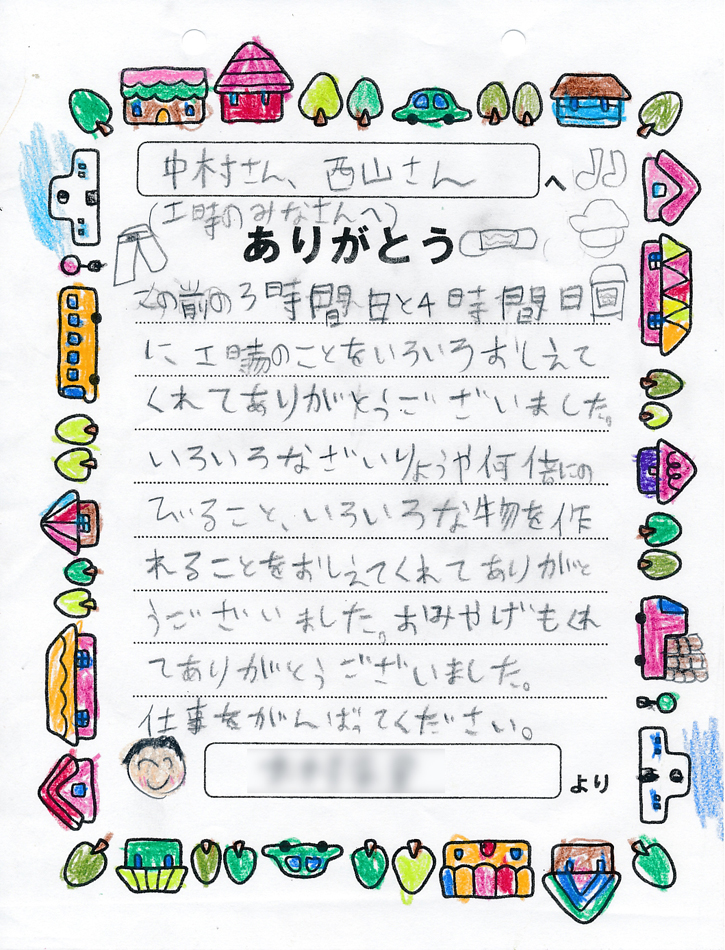 中村さん、西山さん
へ
(工時のみなさんへ)
ありがとう
この前の3時間目と4時間目
に工場のことをいろいろおしえて
くれてありがとうございました。
いろいろなざいりょうや何倍にの
びること、いろいろな物を作
れることをおしえてくれてありがと
うございました。おみやげもくれ
てありがとうございました。
仕事をがんばってください。
より